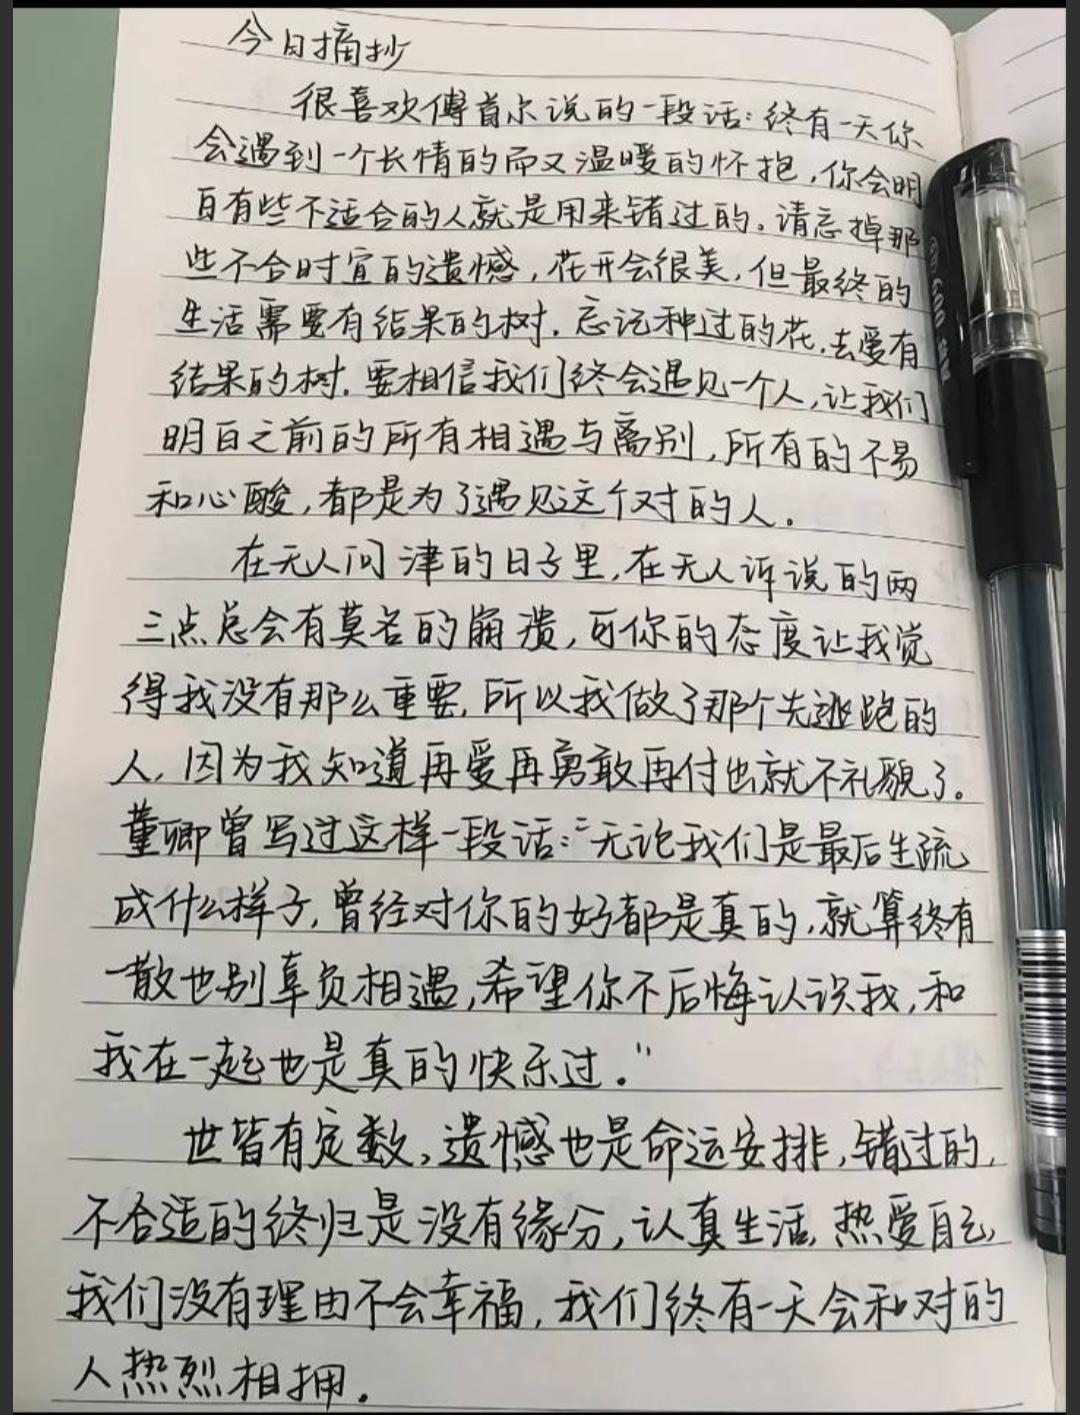 今日摘抄
很喜欢傅首尔说的一段话：终有一天你
会遇到一个长情的而又温暖的怀抱，你会明
白有些不适合的人就是用来错过的。请忘掉那
些不合时宜的遗憾，花开会很美，但最终的
生活需要有结果的树．忘记种过的花，去爱有
结果的树．要相信我们终会遇见一个人，让我们
明白之前的所有相遇与离别，所有的不易
和心酸，都是为了遇见这个对的人。
在无人问津的日子里，在无人诉说的两
三点总会有莫名的崩溃，可你的态度让我觉
得我没有那么重要，所以我做了那个先逃跑的
人，因为我知道再爱再勇敢再付出就不礼貌了。
董卿曾写过这样一段话：“无论我们是最后生疏
成什么样子，曾经对你的好都是真的，就算终有
一散也别辜负相遇，希望你不后悔认识我，和
我在一起也是真的快乐过．”
世皆有定数，遗憾也是命运安排，错过的，
不合适的终归是没有缘分，认真生活，热爱自己，
我们没有理由不会幸福，我们终有一天会和对的
人热烈相拥．